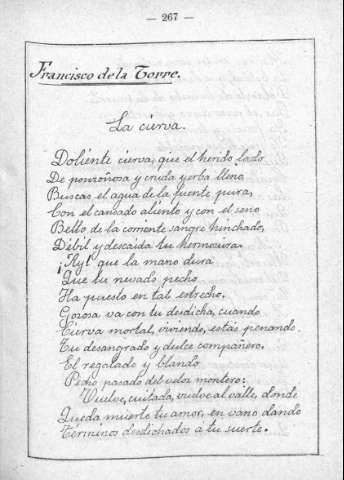 — 267 —
Francisco de la Torre.
La cierva.
Doliente cierva, que el herido lado
De ponzoñosa y cruda yerba lleno,
Buscas el agua de la fuente pura,
Con el cansado aliento y con el seno
Bello de la corriente sangre hinchado,
Débil y descaída tu hermosura.
¡Ay! que la mano dura
Que tu nevado pecho
Ha puesto en tal estrecho,
Gozosa va con tu desdicha, cuando
Cierva mortal, viviendo, estás penando
Tu desangrado y dulce compañero,
El regalado y blando
Pecho pasado del veloz montero:
Vuelve, cuitada, vuelve al valle, donde
Queda muerto tu amor, en vano dando
Términos desdichados a tu suerte.